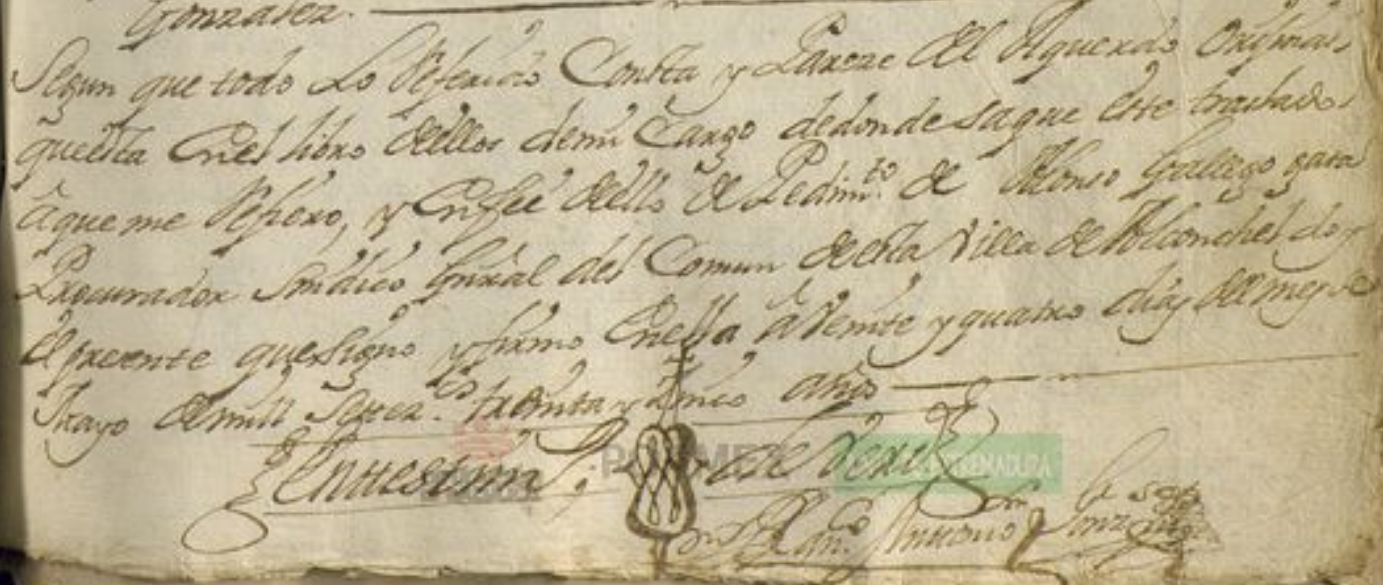 Gonzalez.
Segun que todo Lo Referido Consta y Pareze del Aquerdo Original
questa en el libro dellos de mi Cargo de donde saque este traslado
aque me Refiero, y en fee dello de Pedim.to de Alonso Gallego para
Procurador Sindico Gñral del Comun desta Villa de Alconchel doy
el presente que signo y firmo en ella a Veinte y quatro dias del mes de
Mayo de mill Setez.os treinta y zinco años
En testim.o de Verd
Fran.co Antonio Gonz